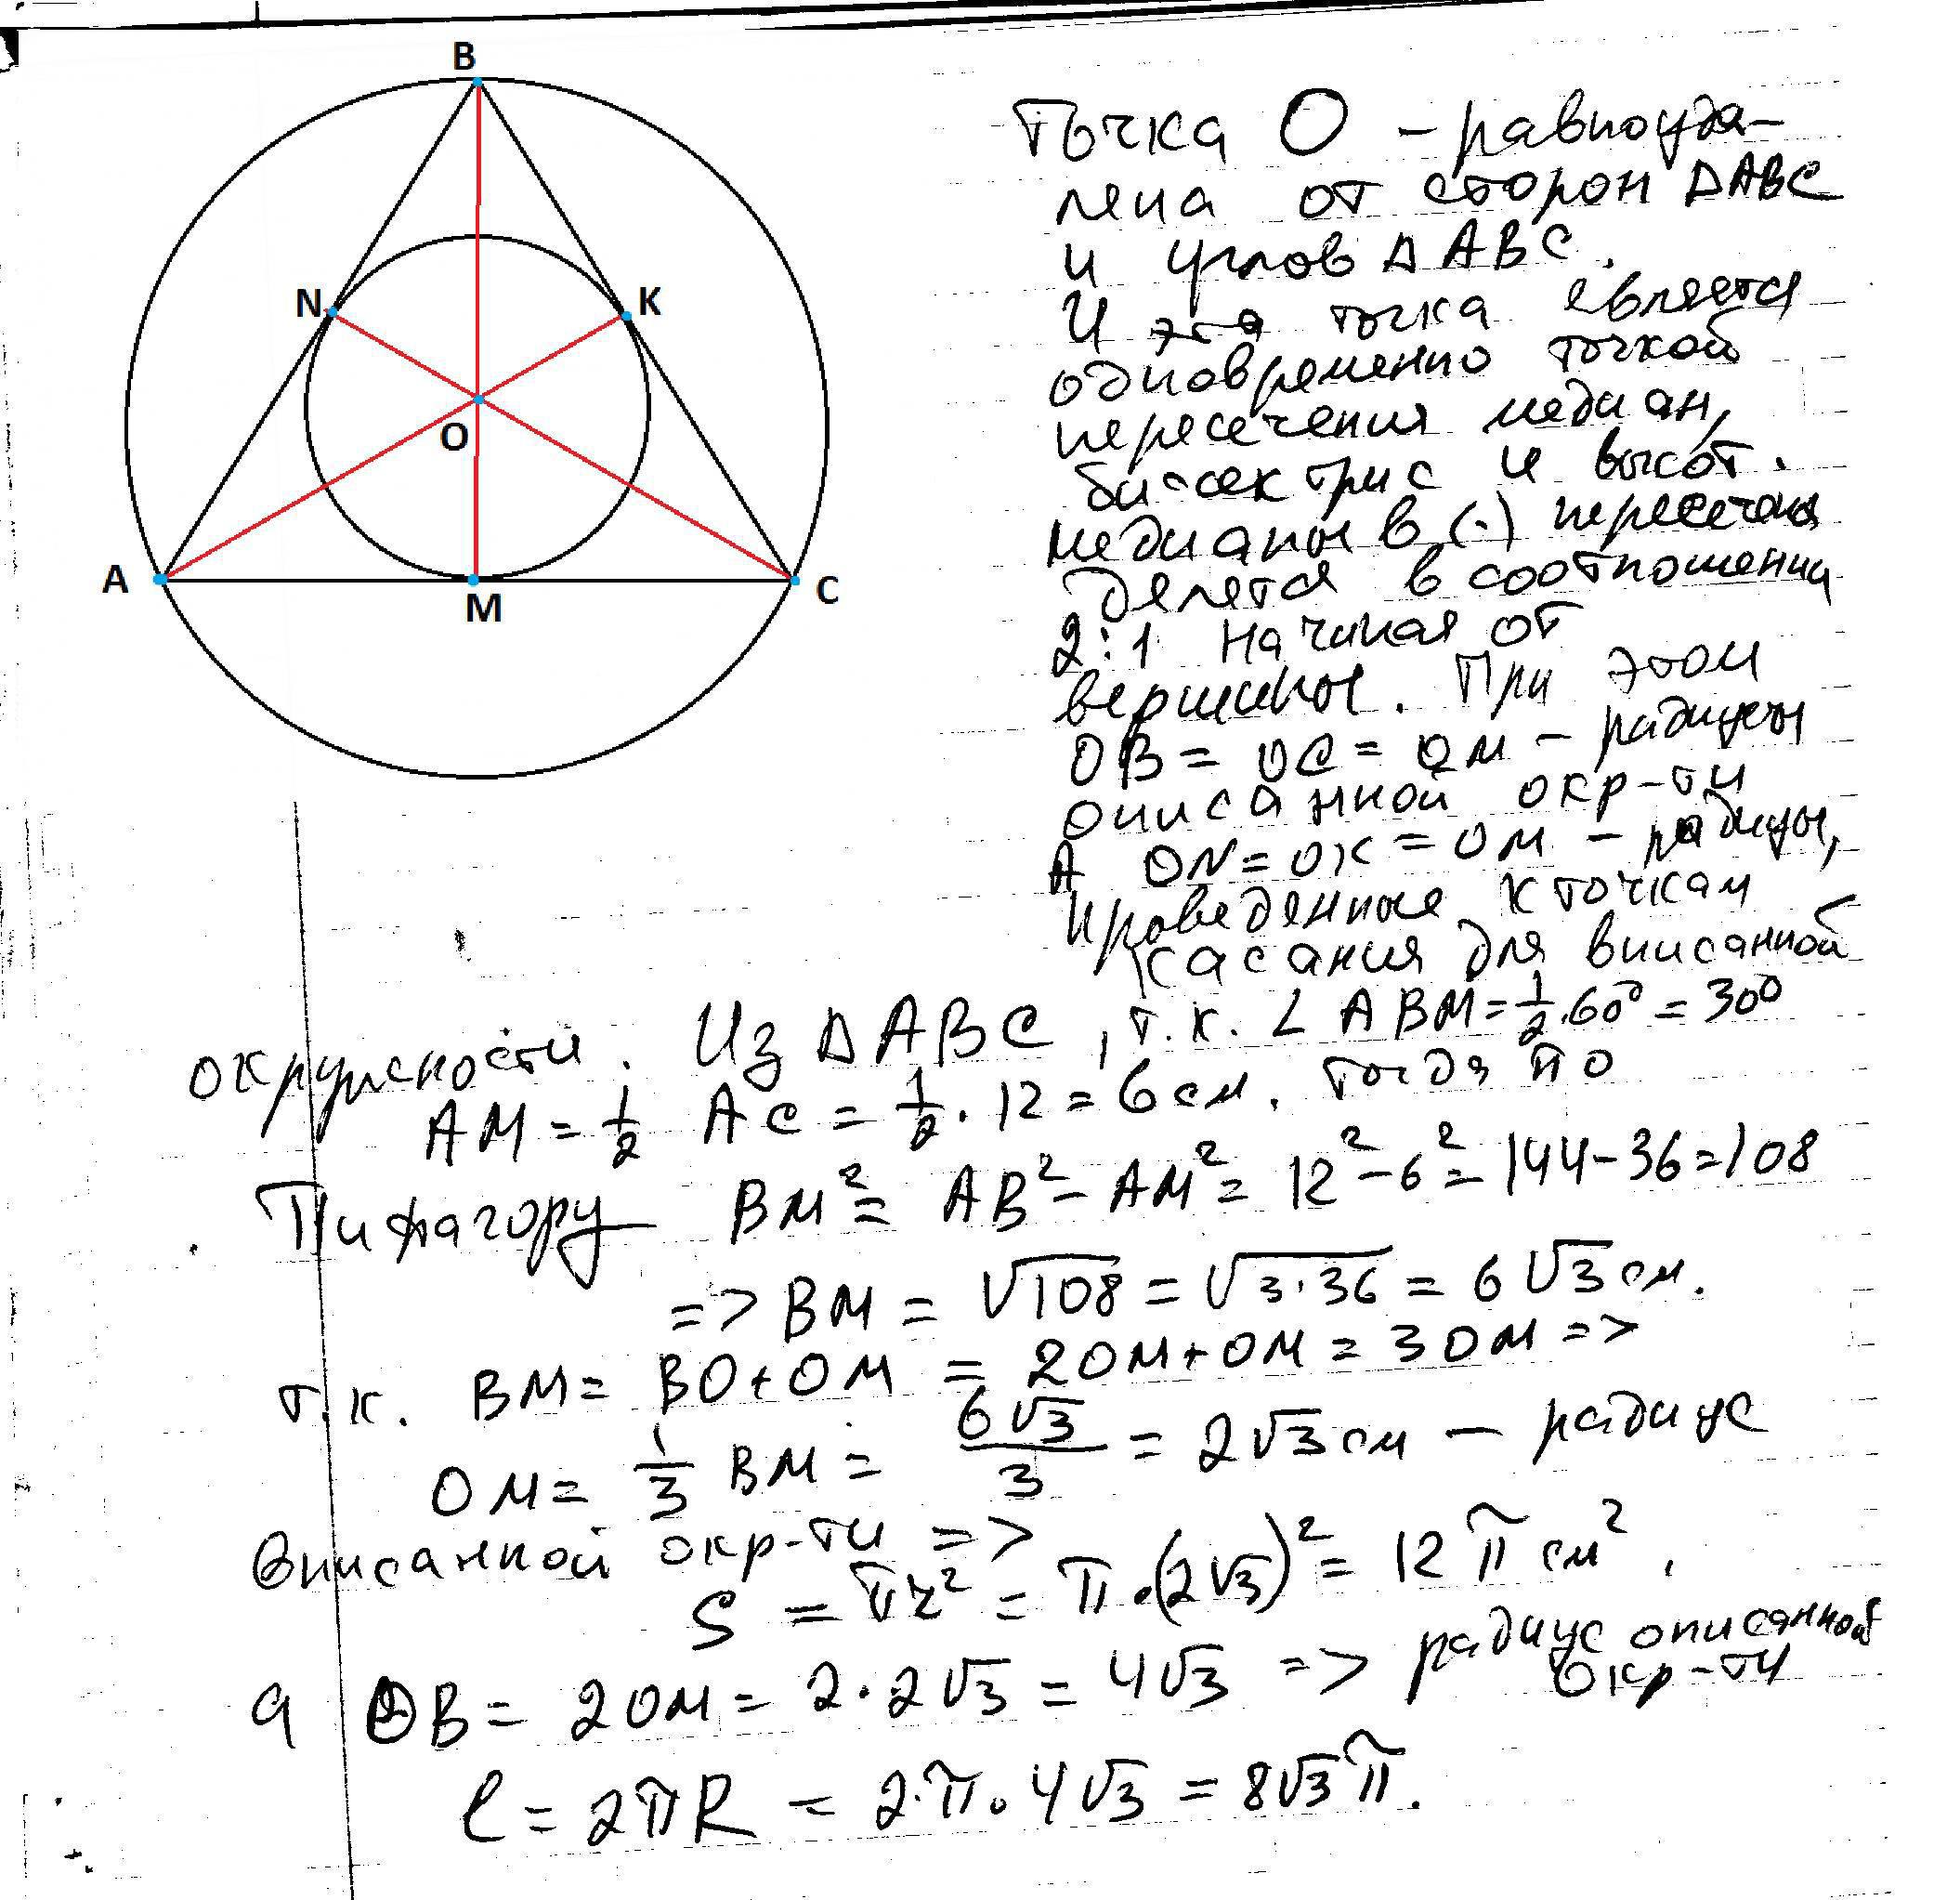 B
N
K
O
A
M
C
Точка O – равноуда-
лена от сторон ΔABC
и углов ΔABC.
И эта точка евляется
одновременно точкой
пересечения медиан,
биссектрис и высот.
медианы в (·) пересечения
делетя в соотношении
2:1 начиная от
вершины. При этом
OB = OC = OM – радиусы
описанной окр-ти
А ON = OK = OM – радиусы,
проведенные к точкам
касания для вписанной
окружности. Из ΔABC, т.к. ∠ABM = 1/2·60° = 30°
AM = 1/2 AC = 1/2 · 12 = 6 см. тогда по
Пифагору BM² = AB² – AM² = 12² – 6² = 144 – 36 = 108
=> BM = √108 = √3·36 = 6√3 см.
т.к. BM = BO + OM = 2OM + OM = 3OM =>
OM = 1/3 BM = 6√3/3 = 2√3 см – радиус
вписанной окр-ти =>
S = πr² = π·(2√3)² = 12π см².
а OB = 2OM = 2·2√3 = 4√3 => радиус описанной
окр-ти
l = 2πR = 2·π·4√3 = 8√3π.